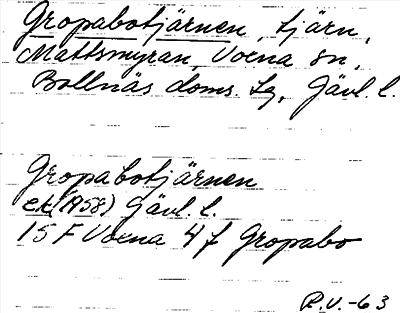 Gropabotjärnen, tjärn,
Mattsmyran, Voxna sn,
Bollnäs doms. sg, Gävl. l.
Gropabotjärnen
ek (1958) Gävl. l.
15 F Voxna 4 f Gropabo
R.V.-63